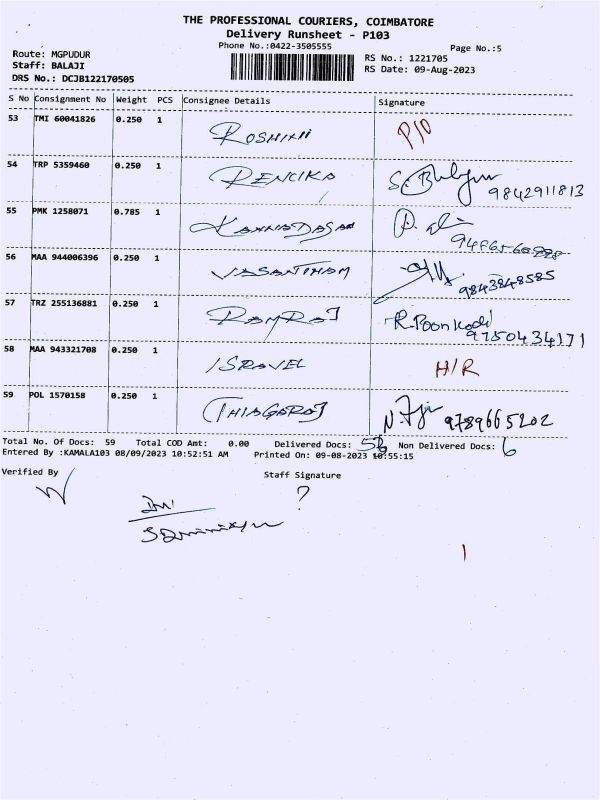 THE PROFESSIONAL COURIERS, COIMBATORE
Delivery Runsheet - P103
Phone No.:0422-3505555
Page No.:5
Route: MGPUDUR
Staff: BALAJI
DRS No.: DCJB122170505
RS No.: 1221705
RS Date: 09-Aug-2023
S No Consignment No Weight PCS Consignee Details Signature
53 TMI 60041826 0.250 1 ROSHINI P/O
54 TRP 5359460 0.250 1 RENCIKA 9842911813
55 PMK 1258071 0.785 1 KANNADASAN
56 MAA 944006396 0.250 1 VASANTHAM 9843848585
57 TRZ 255136881 0.250 1 RAMRAJ R.Poonkodi
9750434171
58 MAA 943321708 0.250 1 ISRAVEL H/R
59 POL 1570158 0.250 1 THIAGARAJ 9789665202
Total No. Of Docs: 59 Total COD Amt: 0.00 Delivered Docs: Non Delivered Docs: 6
Entered By :KAMALA103 08/09/2023 10:52:51 AM Printed On: 09-08-2023 10:55:15
Verified By Staff Signature
?